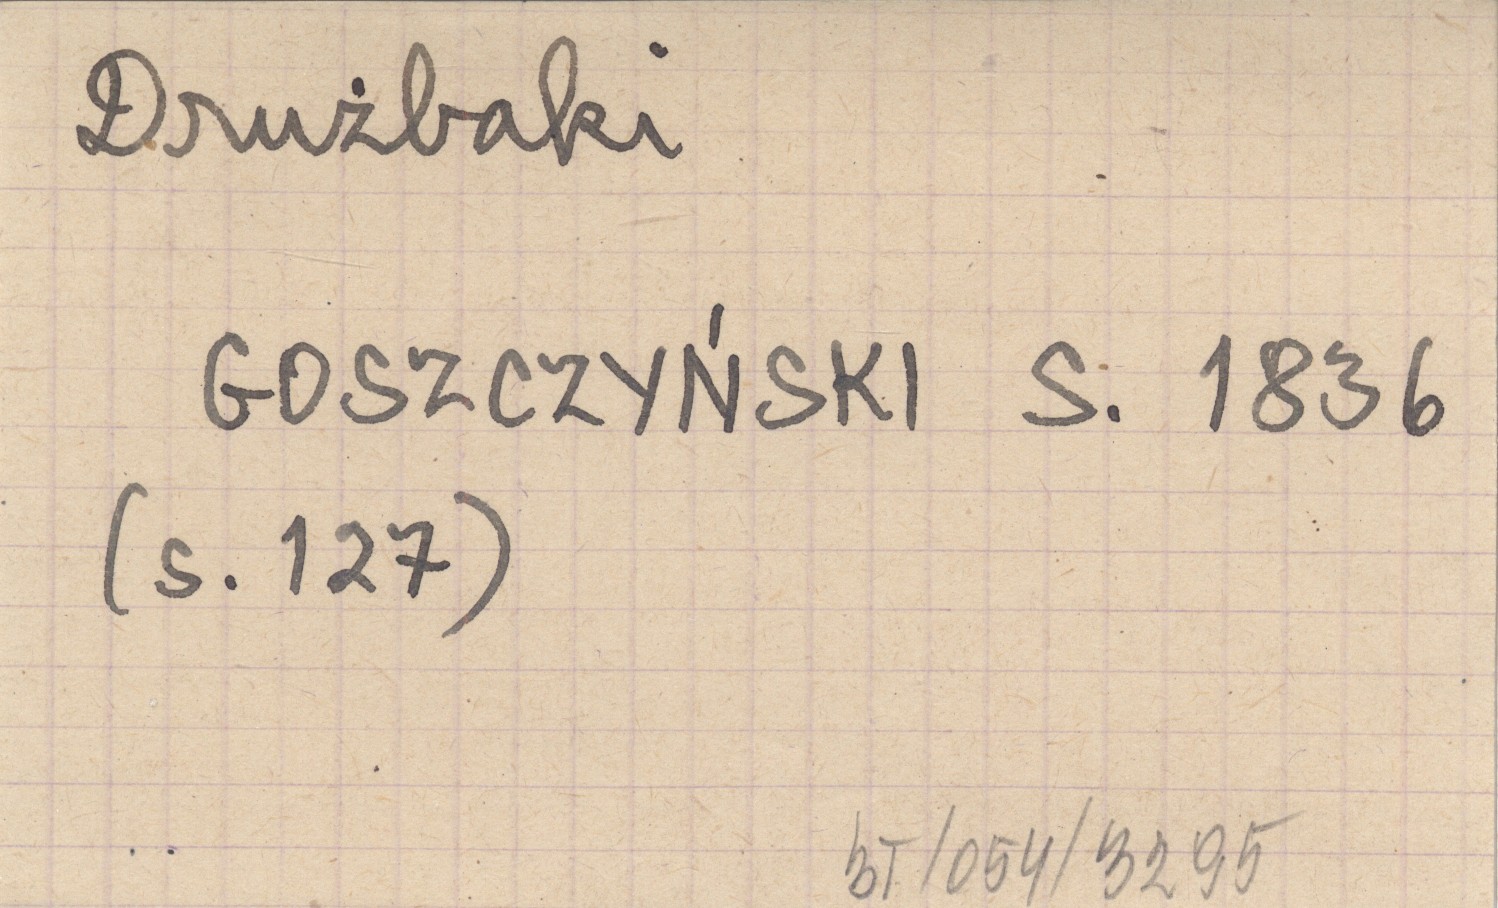 Drużbaki
GOSZCZYŃSKI S. 1836
(s. 127)
BT/054/3295